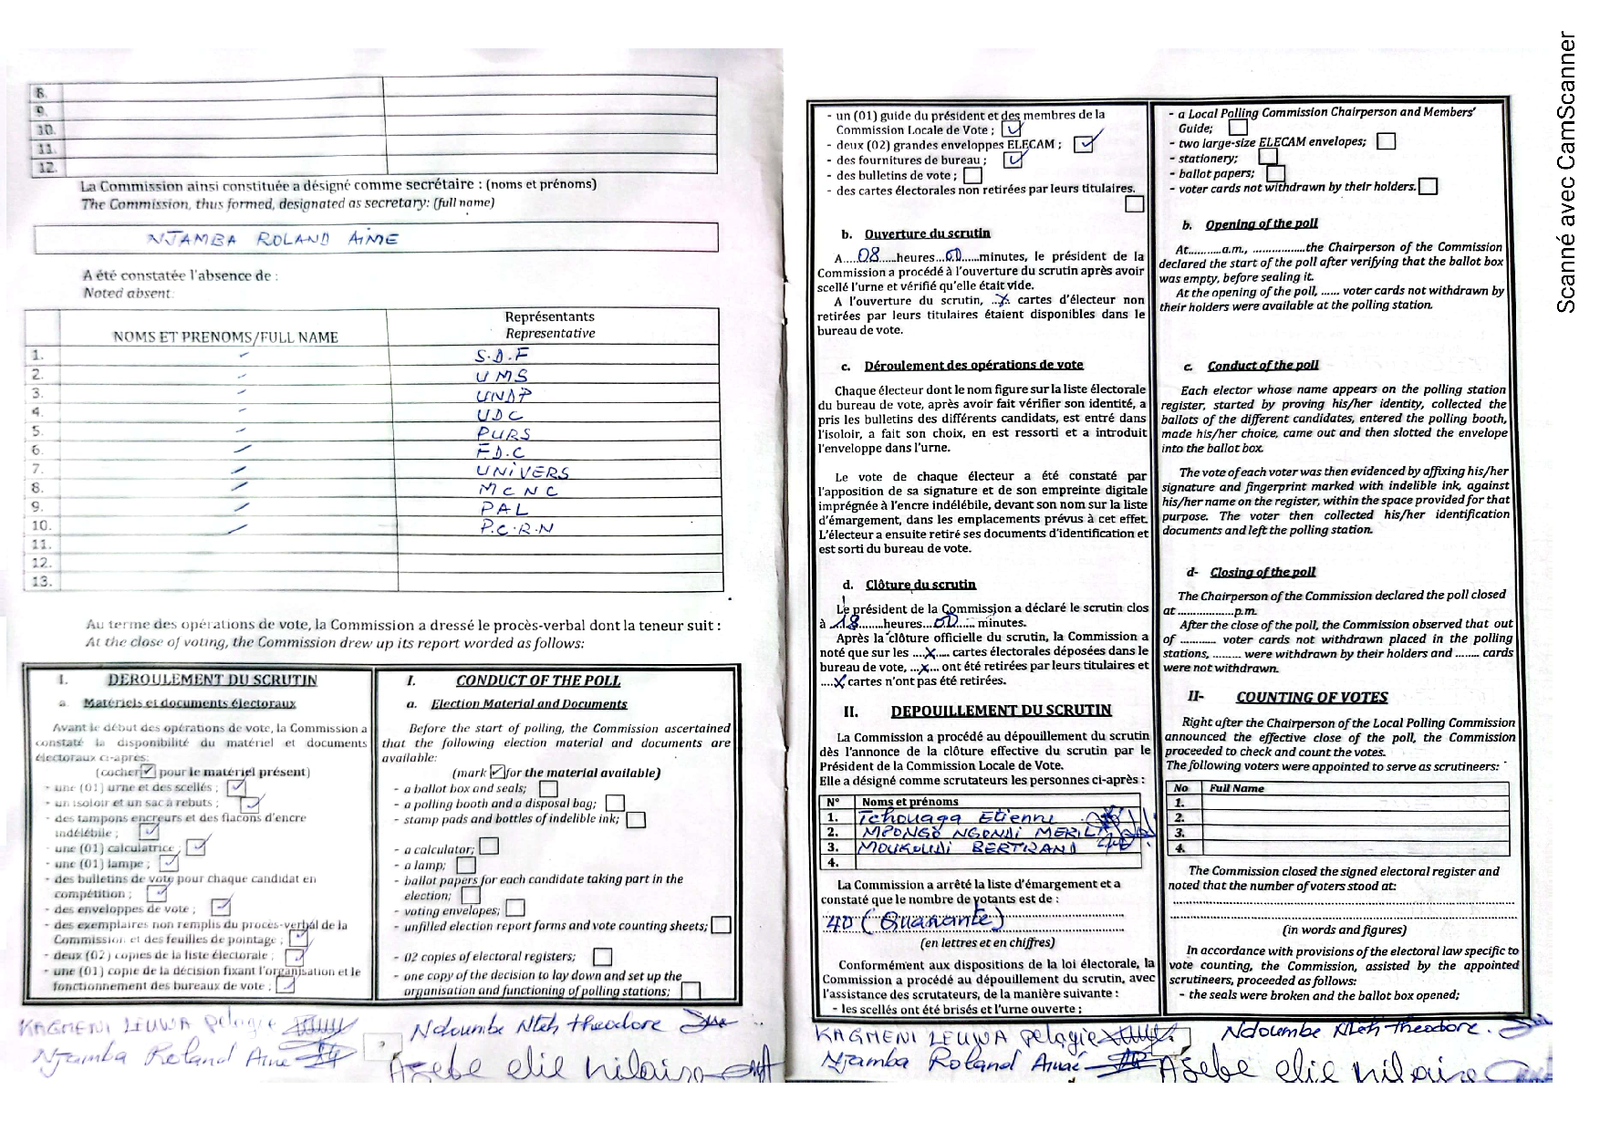 8.
9.
10.
11.
12.
La Commission ainsi constituée a désigné comme secrétaire : (noms et prénoms)
The Commission, thus formed, designated as secretary: (full name)
NJAMBA ROLAND AIME
A été constatée l'absence de :
Noted absent:
NOMS ET PRENOMS/FULL NAME
Représentants
Representative
1. S.D.F
2. UMS
3. UNDP
4. UDC
5. PURS
6. F.D.C
7. UNIVERS
8. MCNC
9. PAL
10. P.C.R.N
11.
12.
13.
Au terme des opérations de vote, la Commission a dressé le procès-verbal dont la teneur suit :
At the close of voting, the Commission drew up its report worded as follows:
I. DEROULEMENT DU SCRUTIN
a. Matériels et documents électoraux
Avant le début des opérations de vote, la Commission a
constaté la disponibilité du matériel et documents
électoraux ci-après:
(cocher ✓ pour le matériel présent)
- une (01) urne et des scellés ; ✓
- un isoloir et un sac à rebuts ; ✓
- des tampons encreurs et des flacons d'encre
indélébile ; ✓
- une (01) calculatrice ; ✓
- une (01) lampe ; ✓
- des bulletins de vote pour chaque candidat en
compétition ; ✓
- des enveloppes de vote ; ✓
- des exemplaires non remplis du procès-verbal de la
Commission et des feuilles de pointage ; ✓
- deux (02) copies de la liste électorale ; ✓
- une (01) copie de la décision fixant l'organisation et le
fonctionnement des bureaux de vote ; ✓
I. CONDUCT OF THE POLL
a. Election Material and Documents
Before the start of polling, the Commission ascertained
that the following election material and documents are
available:
(mark ✓ for the material available)
- a ballot box and seals;
- a polling booth and a disposal bag;
- stamp pads and bottles of indelible ink;
- a calculator;
- a lamp;
- ballot papers for each candidate taking part in the
election;
- voting envelopes;
- unfilled election report forms and vote counting sheets;
- 02 copies of electoral registers;
- one copy of the decision to lay down and set up the
organisation and functioning of polling stations;
KAGMENI LEUWA Pélagie
Ndoumbe Nteh Theodore
Njamba Roland Aimé
elie hilaire
- un (01) guide du président et des membres de la
Commission Locale de Vote ; ✓
- deux (02) grandes enveloppes ELECAM ; ✓
- des fournitures de bureau ; ✓
- des bulletins de vote ;
- des cartes électorales non retirées par leurs titulaires.
b. Ouverture du scrutin
A....08......heures...00....minutes, le président de la
Commission a procédé à l'ouverture du scrutin après avoir
scellé l'urne et vérifié qu'elle était vide.
A l'ouverture du scrutin, ..X.. cartes d'électeur non
retirées par leurs titulaires étaient disponibles dans le
bureau de vote.
c. Déroulement des opérations de vote
Chaque électeur dont le nom figure sur la liste électorale
du bureau de vote, après avoir fait vérifier son identité, a
pris les bulletins des différents candidats, est entré dans
l'isoloir, a fait son choix, en est ressorti et a introduit
l'enveloppe dans l'urne.
Le vote de chaque électeur a été constaté par
l'apposition de sa signature et de son empreinte digitale
imprégnée à l'encre indélébile, devant son nom sur la liste
d'émargement, dans les emplacements prévus à cet effet.
L'électeur a ensuite retiré ses documents d'identification et
est sorti du bureau de vote.
d. Clôture du scrutin
Le président de la Commission a déclaré le scrutin clos
à ..18......heures....00..... minutes.
Après la clôture officielle du scrutin, la Commission a
noté que sur les ....X.... cartes électorales déposées dans le
bureau de vote, ...X... ont été retirées par leurs titulaires et
....X cartes n'ont pas été retirées.
II. DEPOUILLEMENT DU SCRUTIN
La Commission a procédé au dépouillement du scrutin
dès l'annonce de la clôture effective du scrutin par le
Président de la Commission Locale de Vote.
Elle a désigné comme scrutateurs les personnes ci-après :
N° Noms et prénoms
1. Tchouaga Etienne
2. MPONGO NGONDI MERIL
3. MOUKOUDI BERTRAND
4.
La Commission a arrêté la liste d'émargement et a
constaté que le nombre de votants est de :
40 (Quarante)
(en lettres et en chiffres)
Conformément aux dispositions de la loi électorale, la
Commission a procédé au dépouillement du scrutin, avec
l'assistance des scrutateurs, de la manière suivante :
- les scellés ont été brisés et l'urne ouverte ;
- a Local Polling Commission Chairperson and Members'
Guide;
- two large-size ELECAM envelopes;
- stationery;
- ballot papers;
- voter cards not withdrawn by their holders.
b. Opening of the poll
At.........a.m., ..................the Chairperson of the Commission
declared the start of the poll after verifying that the ballot box
was empty, before sealing it.
At the opening of the poll, ...... voter cards not withdrawn by
their holders were available at the polling station.
c. Conduct of the poll
Each elector whose name appears on the polling station
register, started by proving his/her identity, collected the
ballots of the different candidates, entered the polling booth,
made his/her choice, came out and then slotted the envelope
into the ballot box.
The vote of each voter was then evidenced by affixing his/her
signature and fingerprint marked with indelible ink, against
his/her name on the register, within the space provided for that
purpose. The voter then collected his/her identification
documents and left the polling station.
d- Closing of the poll
The Chairperson of the Commission declared the poll closed
at ..................p.m.
After the close of the poll, the Commission observed that out
of ............ voter cards not withdrawn placed in the polling
stations, ......... were withdrawn by their holders and ........ cards
were not withdrawn.
II- COUNTING OF VOTES
Right after the Chairperson of the Local Polling Commission
announced the effective close of the poll, the Commission
proceeded to check and count the votes.
The following voters were appointed to serve as scrutineers:
No Full Name
1.
2.
3.
4.
The Commission closed the signed electoral register and
noted that the number of voters stood at:
(in words and figures)
In accordance with provisions of the electoral law specific to
vote counting, the Commission, assisted by the appointed
scrutineers, proceeded as follows:
- the seals were broken and the ballot box opened;
KAGMENI LEUWA Pélagie
Ndoumbe Nteh Theodore.
Njamba Roland Aimé
elie hilaire
Scanné avec CamScanner